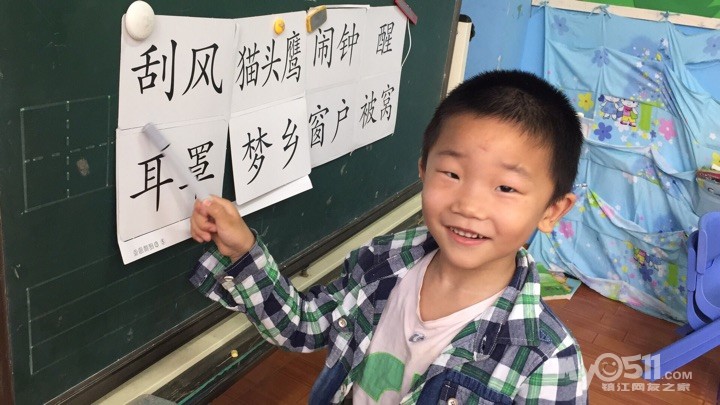 刮风 猫头鹰 闹钟 醒
耳罩 梦乡 窗户 被窝
my0511.com
镇江网友之家